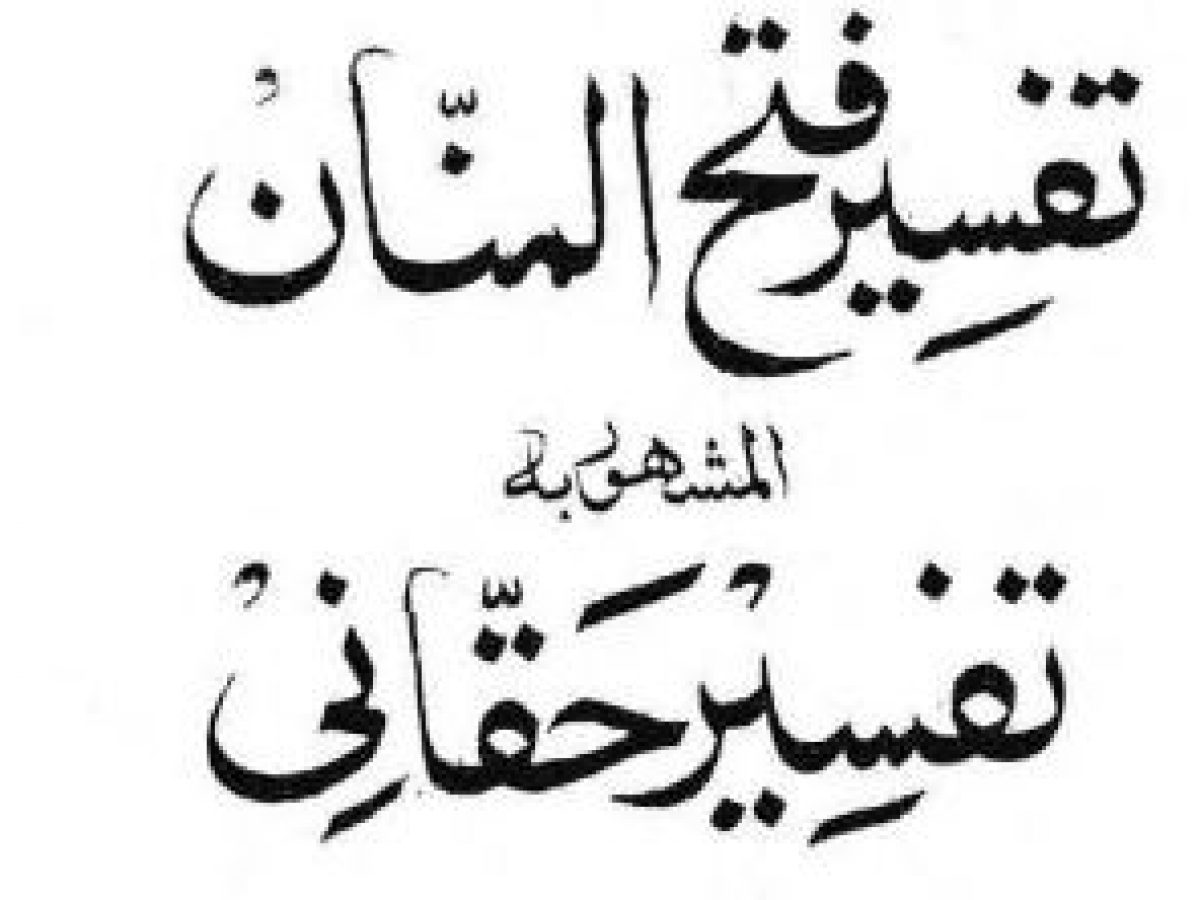 تفسِیر فتح المنّانْ
المشہور بہ
تفسِیْر حَقّانِیْ